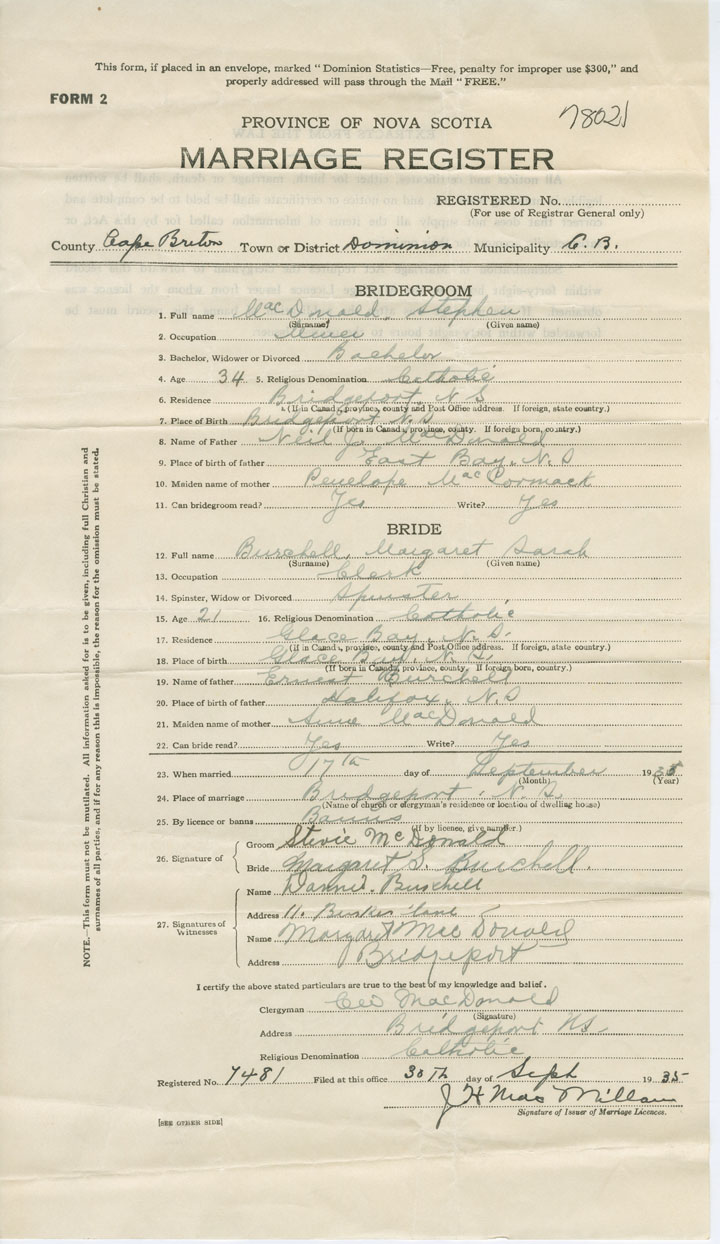 This form, if placed in an envelope, marked "Dominion Statistics—Free, penalty for improper use $300," and
properly addressed will pass through the Mail "FREE."
FORM 2
78021
PROVINCE OF NOVA SCOTIA
MARRIAGE REGISTER
REGISTERED No.
(For use of Registrar General only)
County Cape Breton Town or District Dominion Municipality C. B.
BRIDEGROOM
1. Full name MacDonald, Stephen
(Surname) (Given name)
2. Occupation Miner
3. Bachelor, Widower or Divorced Bachelor
4. Age 34 5. Religious Denomination Catholic
6. Residence Bridgeport, N S
(If in Canada, province, county and Post Office address. If foreign, state country.)
7. Place of Birth Bridgeport N.S
(If born in Canada, province, county. If foreign born, country.)
8. Name of Father Neil J. MacDonald
9. Place of birth of father East Bay, N.S
10. Maiden name of mother Penelope MacCormack
11. Can bridegroom read? Yes Write? Yes
BRIDE
12. Full name Burchell, Margaret Sarah
(Surname) (Given name)
13. Occupation Clerk
14. Spinster, Widow or Divorced Spinster
15. Age 21 16. Religious Denomination Catholic
17. Residence Glace Bay, N.S.
(If in Canada, province, county and Post Office address. If foreign, state country.)
18. Place of birth Glace Bay, N.S.
(If born in Canada, province, county. If foreign born, country.)
19. Name of father Ernest Burchell
20. Place of birth of father Halifax, N.S
21. Maiden name of mother Anne MacDonald
22. Can bride read? Yes Write? Yes
23. When married 17th day of September 1935
(Month) (Year)
24. Place of marriage Bridgeport, N.S.
(Name of church or clergyman's residence or location of dwelling house)
25. By licence or banns Banns
(If by licence, give number.)
26. Signature of
Groom Stevie McDonald
Bride Margaret S. Burchell.
27. Signatures of Witnesses
Name Dannie Burchell
Address 11. lane
Name Margaret MacDonald
Address Bridgeport
I certify the above stated particulars are true to the best of my knowledge and belief.
Clergyman Geo MacDonald
(Signature)
Address Bridgeport NS.
Religious Denomination Catholic
Registered No. 7481 Filed at this office 30th day of Sept 1935
J H MacMillan
Signature of Issuer of Marriage Licences.
[SEE OTHER SIDE]
NOTE.—This form must not be mutilated. All information asked for is to be given, including full Christian and
surnames of all parties, and if for any reason this is impossible, the reason for the omission must be stated.